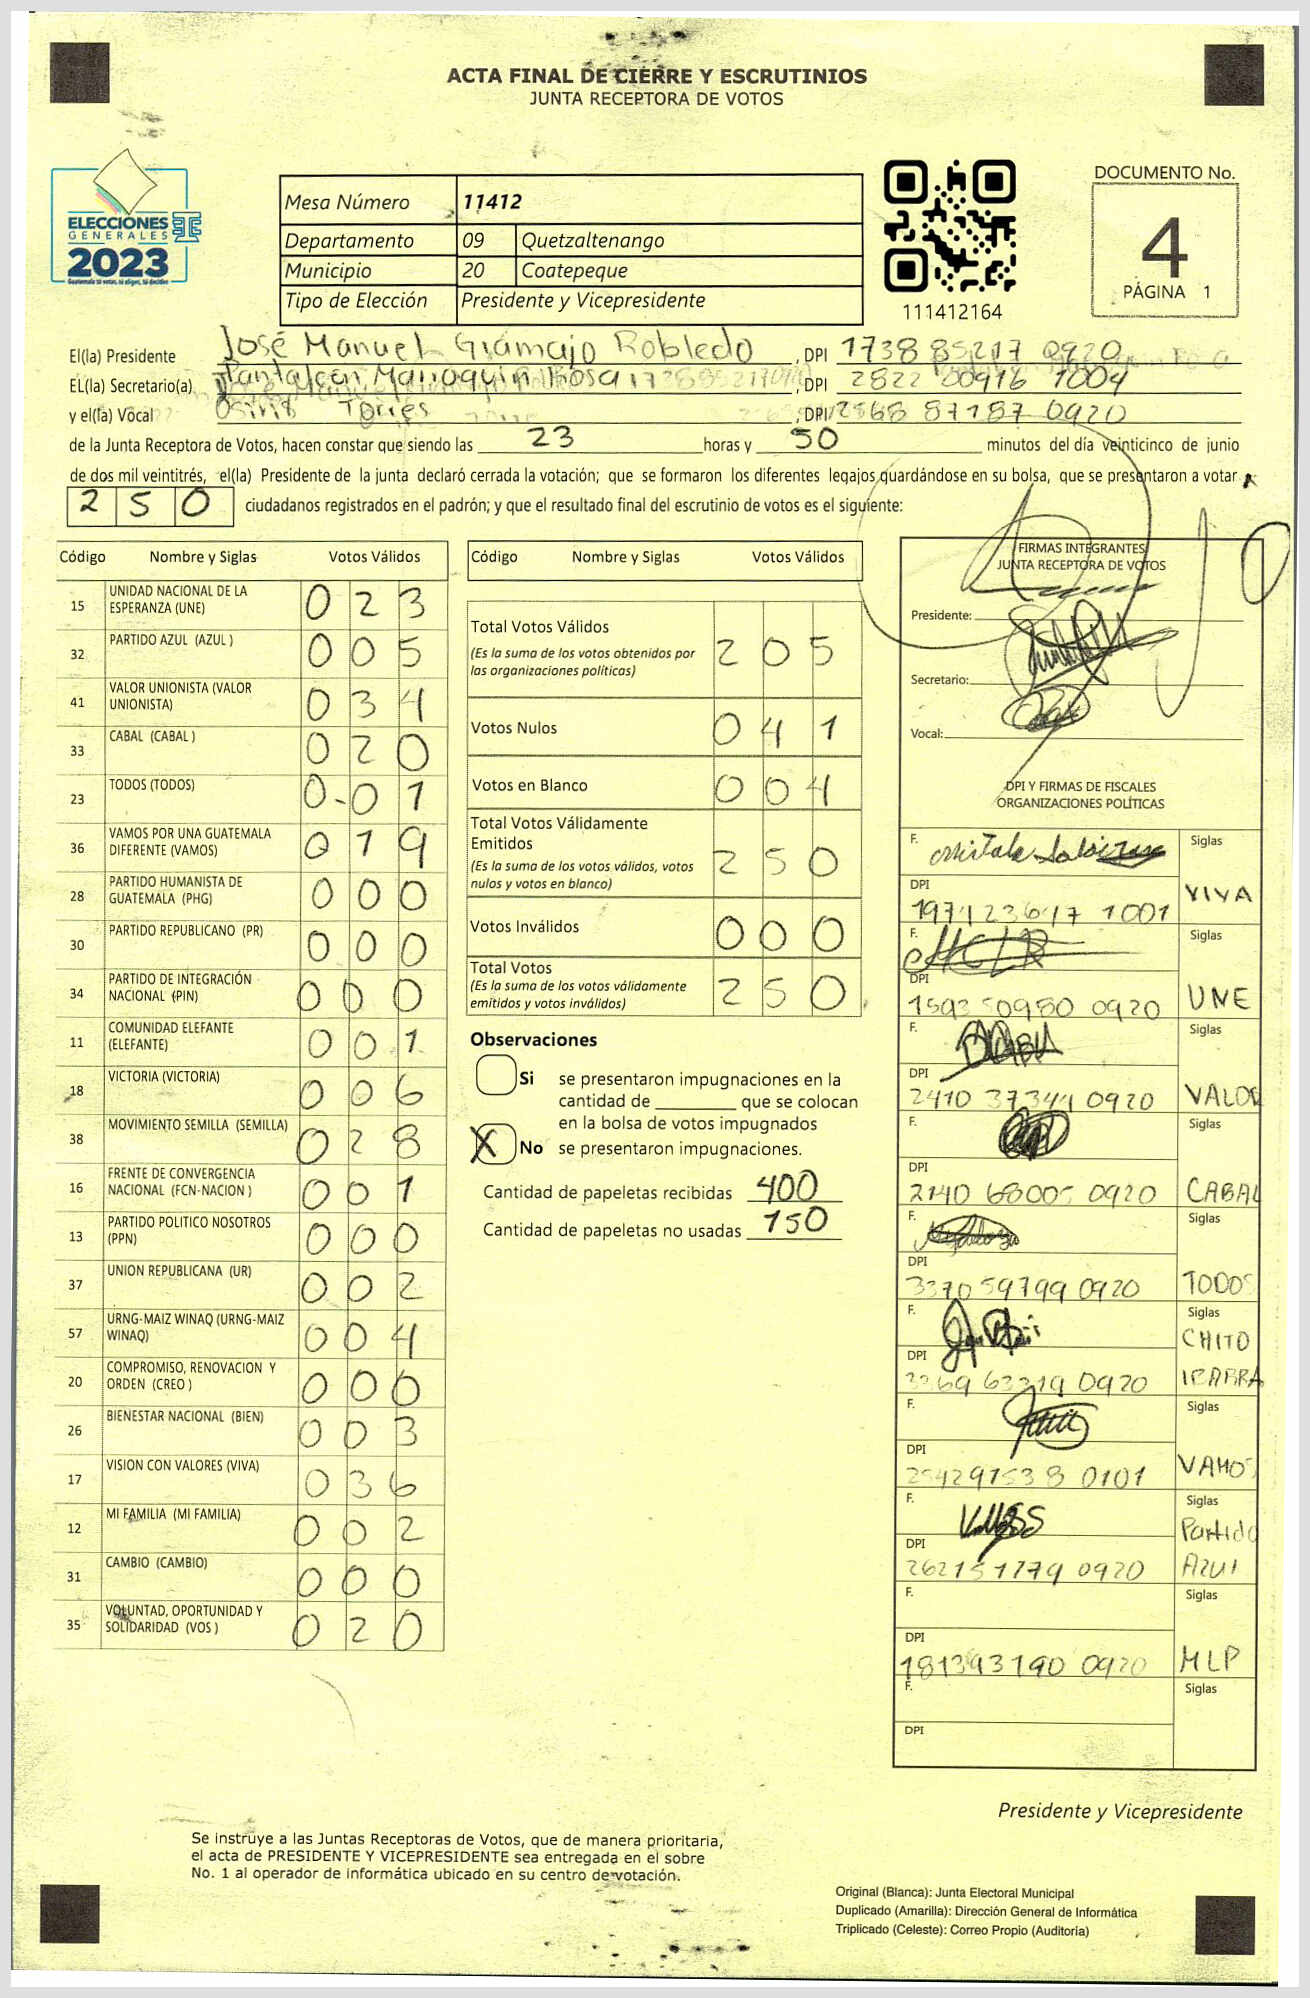 ACTA FINAL DE CIERRE Y ESCRUTINIOS
JUNTA RECEPTORA DE VOTOS
ELECCIONES
GENERALES
2023
Guatemala tú votas, tú eliges, tú decides
Mesa Número 11412
Departamento 09 Quetzaltenango
Municipio 20 Coatepeque
Tipo de Elección Presidente y Vicepresidente
111412164
DOCUMENTO No.
4
PÁGINA 1
El(la) Presidente José Manuel Gramajo Robledo, DPI 1738 85217 0920
EL(la) Secretario(a) Pantaleón Marroquín, DPI 2822 00916 1004
y el(la) Vocal Osiris Torres, DPI 2568 87187 0920
de la Junta Receptora de Votos, hacen constar que siendo las 23 horas y 50 minutos del día veinticinco de junio
de dos mil veintitrés, el(la) Presidente de la junta declaró cerrada la votación; que se formaron los diferentes legajos guardándose en su bolsa, que se presentaron a votar
250 ciudadanos registrados en el padrón; y que el resultado final del escrutinio de votos es el siguiente:
Código Nombre y Siglas Votos Válidos
15 UNIDAD NACIONAL DE LA ESPERANZA (UNE) 023
32 PARTIDO AZUL (AZUL ) 005
41 VALOR UNIONISTA (VALOR UNIONISTA) 034
33 CABAL (CABAL ) 020
23 TODOS (TODOS) 0-01
36 VAMOS POR UNA GUATEMALA DIFERENTE (VAMOS) 019
28 PARTIDO HUMANISTA DE GUATEMALA (PHG) 000
30 PARTIDO REPUBLICANO (PR) 000
34 PARTIDO DE INTEGRACIÓN NACIONAL (PIN) 000
11 COMUNIDAD ELEFANTE (ELEFANTE) 001
18 VICTORIA (VICTORIA) 006
38 MOVIMIENTO SEMILLA (SEMILLA) 028
16 FRENTE DE CONVERGENCIA NACIONAL (FCN-NACION ) 001
13 PARTIDO POLITICO NOSOTROS (PPN) 000
37 UNION REPUBLICANA (UR) 002
57 URNG-MAIZ WINAQ (URNG-MAIZ WINAQ) 004
20 COMPROMISO, RENOVACION Y ORDEN (CREO ) 000
26 BIENESTAR NACIONAL (BIEN) 003
17 VISION CON VALORES (VIVA) 036
12 MI FAMILIA (MI FAMILIA) 002
31 CAMBIO (CAMBIO) 000
35 VOLUNTAD, OPORTUNIDAD Y SOLIDARIDAD (VOS ) 020
Código Nombre y Siglas Votos Válidos
Total Votos Válidos 205
(Es la suma de los votos obtenidos por
las organizaciones políticas)
Votos Nulos 041
Votos en Blanco 004
Total Votos Válidamente
Emitidos 250
(Es la suma de los votos válidos, votos
nulos y votos en blanco)
Votos Inválidos 000
Total Votos 250
(Es la suma de los votos válidamente
emitidos y votos inválidos)
Observaciones
Si se presentaron impugnaciones en la
cantidad de ________ que se colocan
en la bolsa de votos impugnados
X No se presentaron impugnaciones.
Cantidad de papeletas recibidas 400
Cantidad de papeletas no usadas 150
FIRMAS INTEGRANTES
JUNTA RECEPTORA DE VOTOS
Presidente:
Secretario:
Vocal:
DPI Y FIRMAS DE FISCALES
ORGANIZACIONES POLÍTICAS
F. Siglas
DPI 1001 VIVA
F. Siglas
DPI 0920 UNE
F. Siglas
DPI 2410 37344 0920 VALOR
F. Siglas
DPI 2140 0920 CABAL
F. Siglas
DPI 3370 59799 0920 TODOS
F. Siglas
DPI 0920 CHITO IBARRA
F. Siglas
DPI 0101 VAMOS
F. Siglas
DPI 0920 Partido Azul
F. Siglas
DPI 0920 MLP
F. Siglas
DPI
Presidente y Vicepresidente
Se instruye a las Juntas Receptoras de Votos, que de manera prioritaria,
el acta de PRESIDENTE Y VICEPRESIDENTE sea entregada en el sobre
No. 1 al operador de informática ubicado en su centro de votación.
Original (Blanca): Junta Electoral Municipal
Duplicado (Amarilla): Dirección General de Informática
Triplicado (Celeste): Correo Propio (Auditoría)